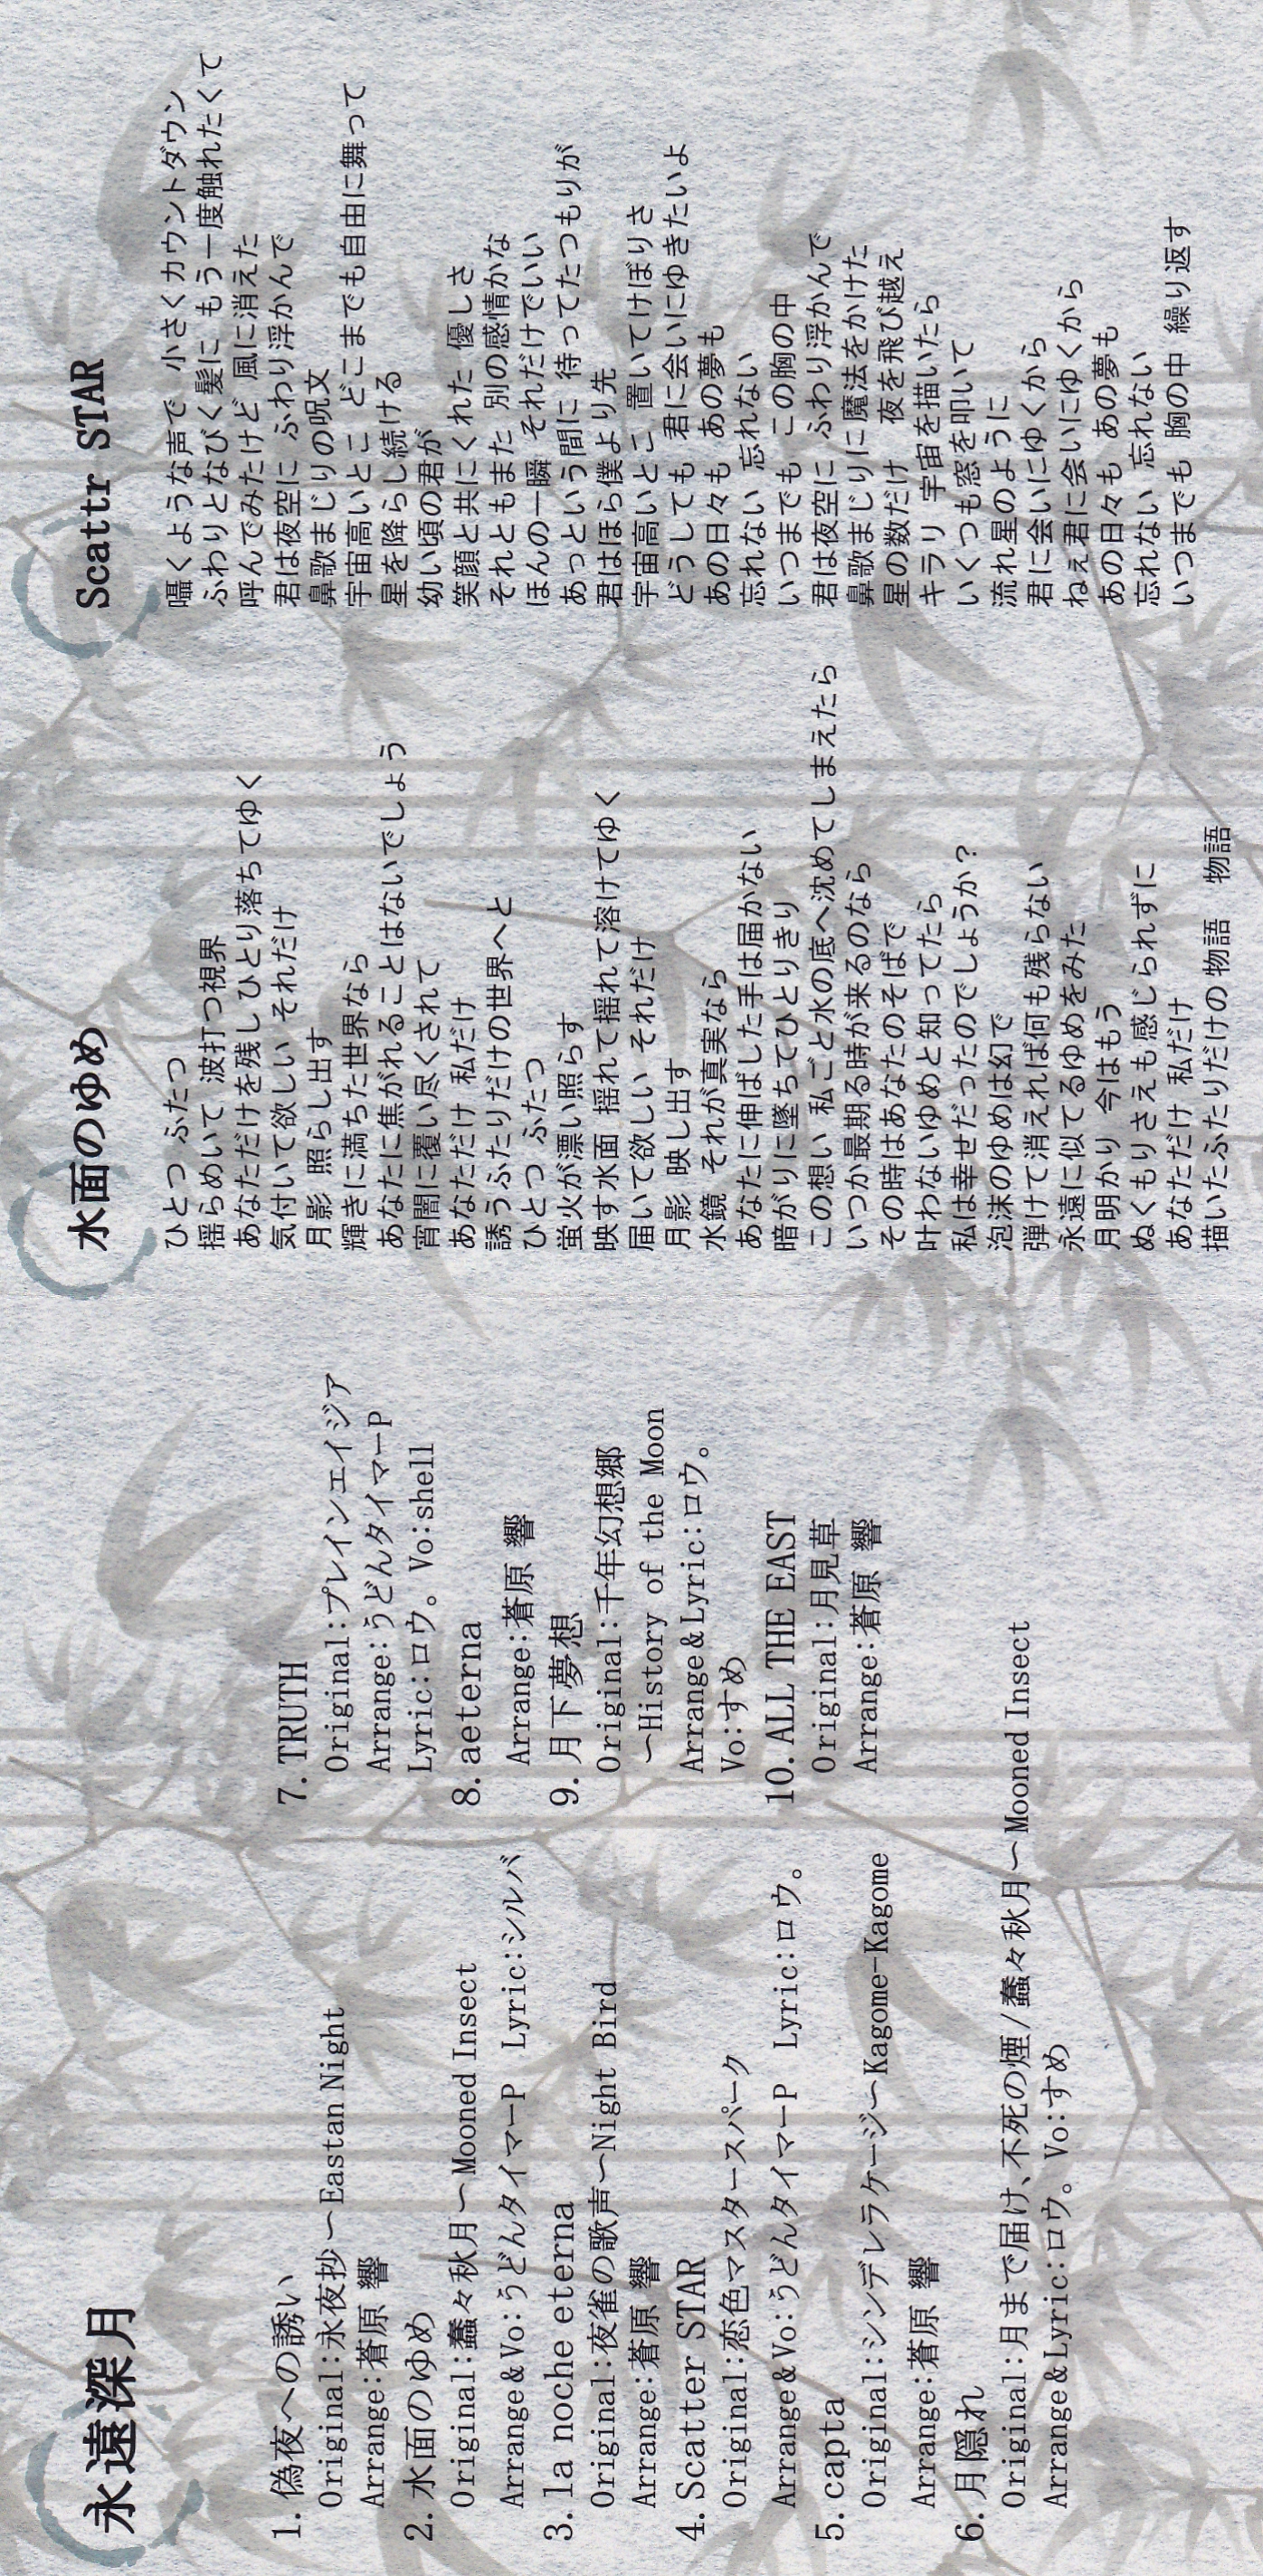 永遠深月
1. 偽夜への誘い
Original:永夜抄〜Eastan Night
Arrange:蒼原 響
2. 水面のゆめ
Original:蠢々秋月〜Mooned Insect
Arrange&Vo:うどんタイマーP　Lyric:シルバ
3. la noche eterna
Original:夜雀の歌声〜Night Bird
Arrange:蒼原 響
4. Scatter STAR
Original:恋色マスタースパーク
Arrange&Vo:うどんタイマーP　Lyric:ロウ。
5. capta
Original:シンデレラケージ〜Kagome-Kagome
Arrange:蒼原 響
6. 月隠れ
Original:月まで届け、不死の煙/蠢々秋月〜Mooned Insect
Arrange&Lyric:ロウ。Vo:すめ
7. TRUTH
Original:プレインエイジア
Arrange:うどんタイマーP
Lyric:ロウ。Vo:shell
8. aeterna
Arrange:蒼原 響
9. 月下夢想
Original:千年幻想郷
〜History of the Moon
Arrange&Lyric:ロウ。
Vo:すめ
10. ALL THE EAST
Original:月見草
Arrange:蒼原 響
水面のゆめ
ひとつ　ふたつ
揺らめいて 波打つ視界
あなただけを残し ひとり落ちてゆく
気付いて欲しい それだけ
月影 照らし出す
輝きに満ちた世界なら
あなたに焦がれることはないでしょう
宵闇に覆い尽くされて
あなただけ 私だけ
誘うふたりだけの世界へと
ひとつ ふたつ
蛍火が漂い照らす
映す水面 揺れて揺れて溶けてゆく
届いて欲しい それだけ
月影 映し出す
水鏡 それが真実なら
あなたに伸ばした手は届かない
暗がりに墜ちてひとりきり
この想い 私ごと水の底へ沈めてしまえたら
いつか最期る時が来るのなら
その時はあなたのそばで
叶わないゆめと知ってたら
私は幸せだったのでしょうか？
泡沫のゆめは幻で
弾けて消えれば何も残らない
永遠に似てるゆめをみた
月明かり 今はもう
ぬくもりさえも感じられずに
あなただけ 私だけ
描いたふたりだけの物語　物語
Scattr STAR
囁くような声で 小さくカウントダウン
ふわりとなびく髪に もう一度触れたくて
呼んでみたけど 風に消えた
君は夜空に ふわり浮かんで
鼻歌まじりの呪文
宇宙高いとこ どこまでも自由に舞って
星を降らし続ける
幼い頃の君が
笑顔と共にくれた 優しさ
それともまた 別の感情かな
ほんの一瞬 それだけでいい
あっという間に 待ってたつもりが
君はほら僕より先
宇宙高いとこ 置いてけぼりさ
どうしても 君に会いにゆきたいよ
あの日々も あの夢も
忘れない 忘れない
いつまでも この胸の中
君は夜空に ふわり浮かんで
鼻歌まじりに魔法をかけた
星の数だけ　夜を飛び越え
キラリ 宇宙を描いたら
いくつも窓を叩いて
流れ星のように
君に会いにゆくから
ねぇ君に会いにゆくから
あの日々も あの夢も
忘れない 忘れない
いつまでも 胸の中 繰り返す